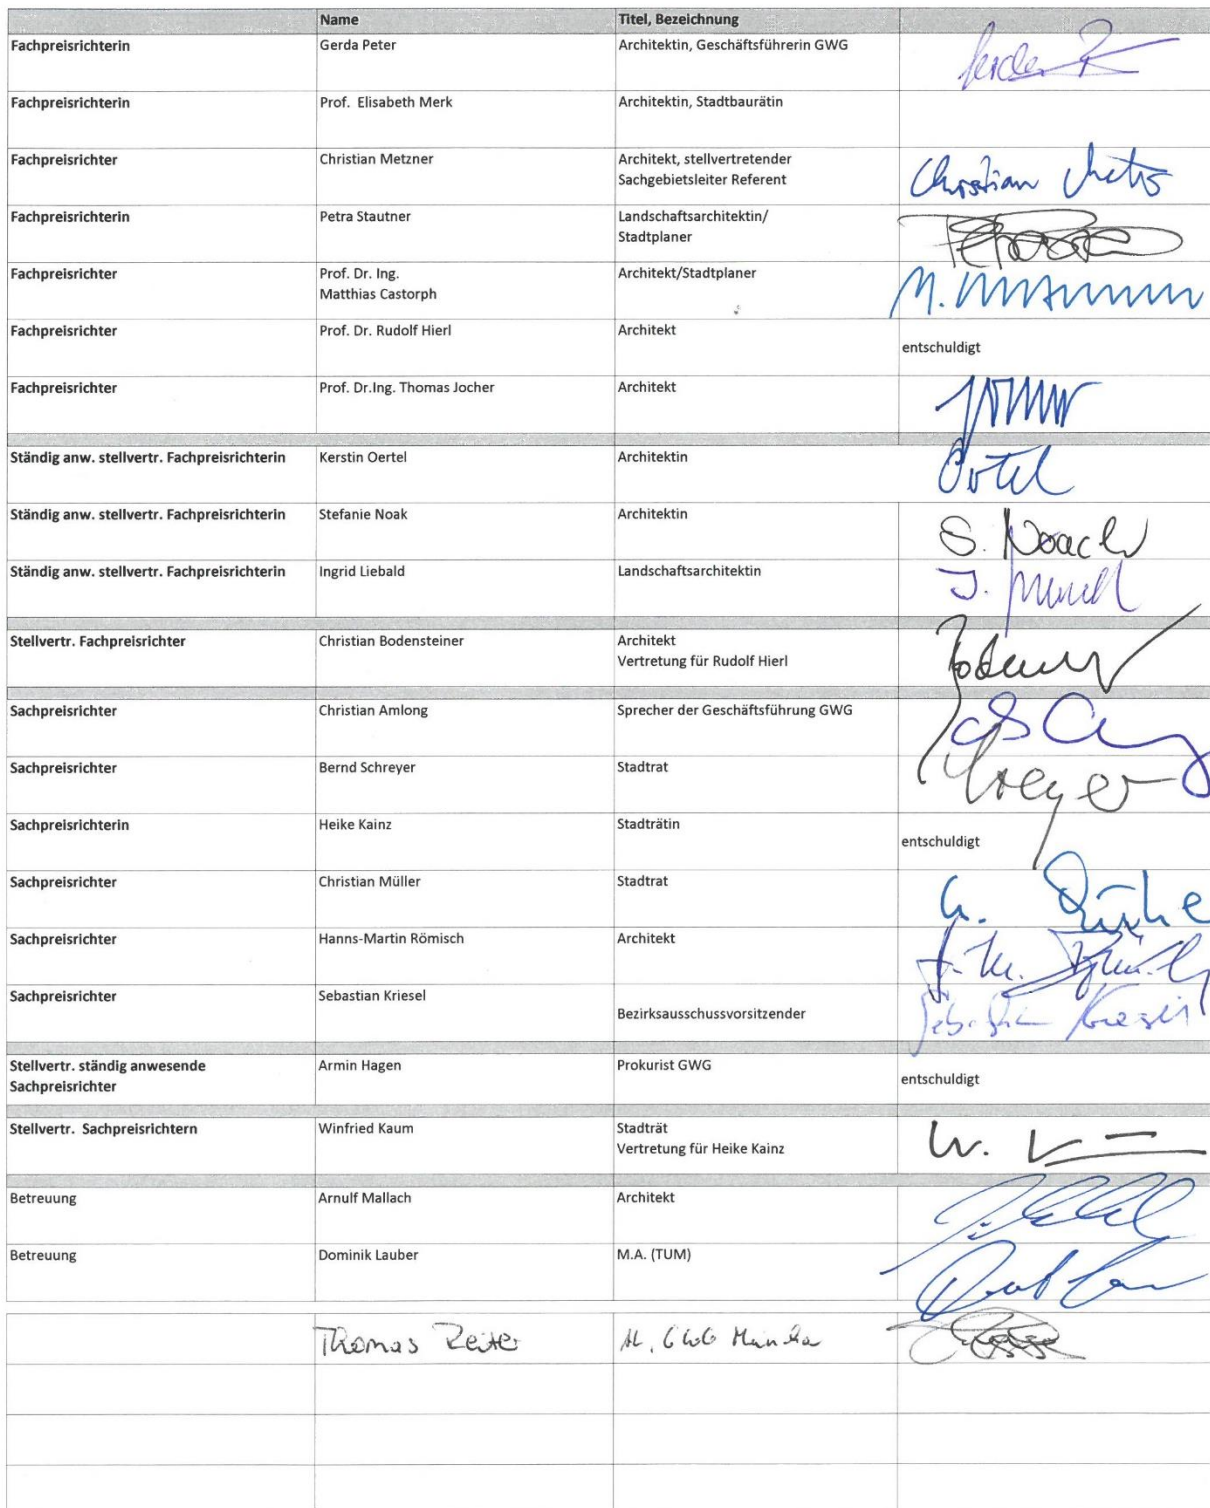 Name Titel, Bezeichnung
Fachpreisrichterin Gerda Peter Architektin, Geschäftsführerin GWG
Fachpreisrichterin Prof. Elisabeth Merk Architektin, Stadtbaurätin
Fachpreisrichter Christian Metzner Architekt, stellvertretender
Sachgebietsleiter Referent
Christian
Fachpreisrichterin Petra Stautner Landschaftsarchitektin/
Stadtplaner
Fachpreisrichter Prof. Dr. Ing. Architekt/Stadtplaner
Matthias Castorph
M.
Fachpreisrichter Prof. Dr. Rudolf Hierl Architekt
entschuldigt
Fachpreisrichter Prof. Dr.Ing. Thomas Jocher Architekt
Ständig anw. stellvertr. Fachpreisrichterin Kerstin Oertel Architektin
Ständig anw. stellvertr. Fachpreisrichterin Stefanie Noak Architektin
S. Noack
Ständig anw. stellvertr. Fachpreisrichterin Ingrid Liebald Landschaftsarchitektin
I.
Stellvertr. Fachpreisrichter Christian Bodensteiner Architekt
Vertretung für Rudolf Hierl
Sachpreisrichter Christian Amlong Sprecher der Geschäftsführung GWG
Sachpreisrichter Bernd Schreyer Stadtrat
Sachpreisrichterin Heike Kainz Stadträtin
entschuldigt
Sachpreisrichter Christian Müller Stadtrat
Sachpreisrichter Hanns-Martin Römisch Architekt
Sachpreisrichter Sebastian Kriesel
Bezirksausschussvorsitzender
Stellvertr. ständig anwesende Armin Hagen Prokurist GWG
Sachpreisrichter
entschuldigt
Stellvertr. Sachpreisrichtern Winfried Kaum Stadträt
Vertretung für Heike Kainz
W.
Betreuung Arnulf Mallach Architekt
Betreuung Dominik Lauber M.A. (TUM)
Thomas Reiter GWG München